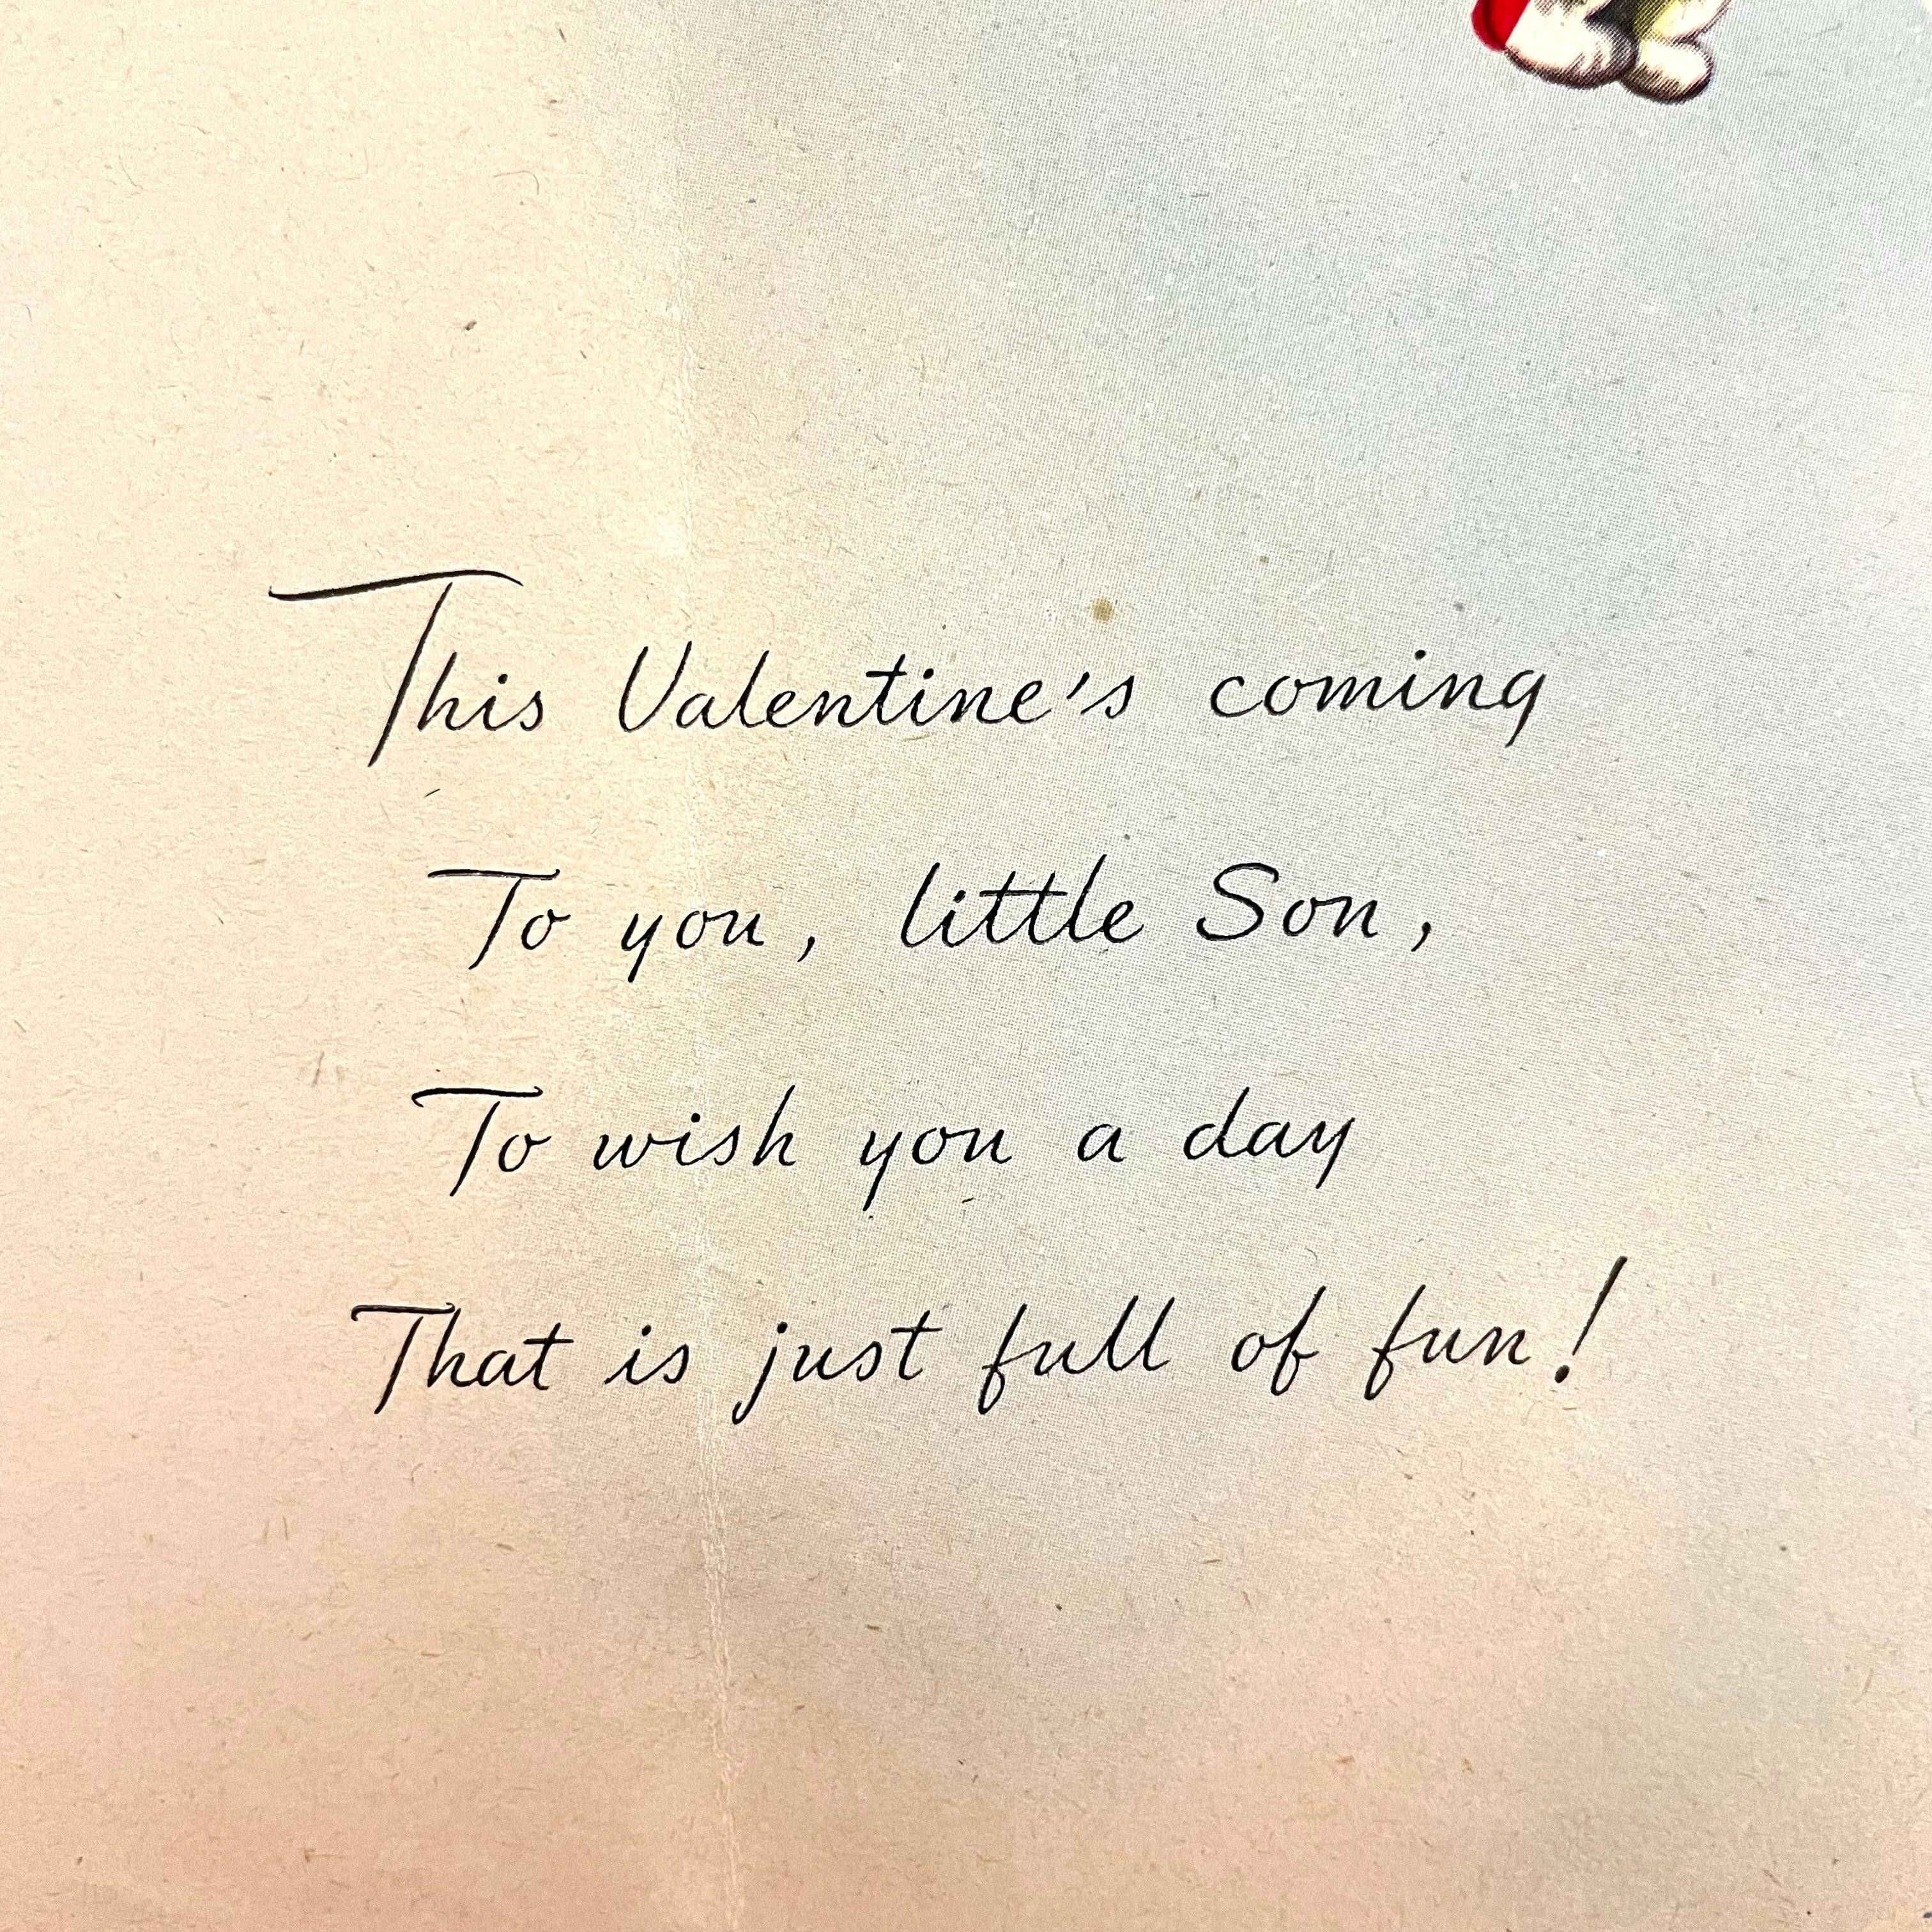 This Valentine's coming
To you, little Son,
To wish you a day
That is just full of fun!